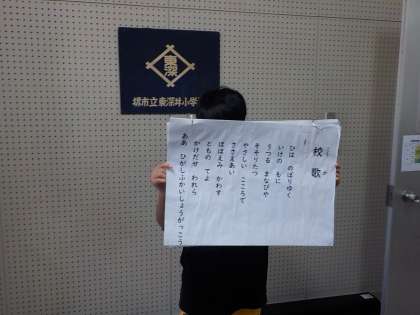 東深
堺市立東深井小学
校歌
ひは のぼりゆく
いけの もに
うつる まなびや
そそりたつ
やさしい こころで
ささえあい
ほほえみ かわす
ともの てよ
かけだせ われら
ああ ひがしふかいしょうがっこう